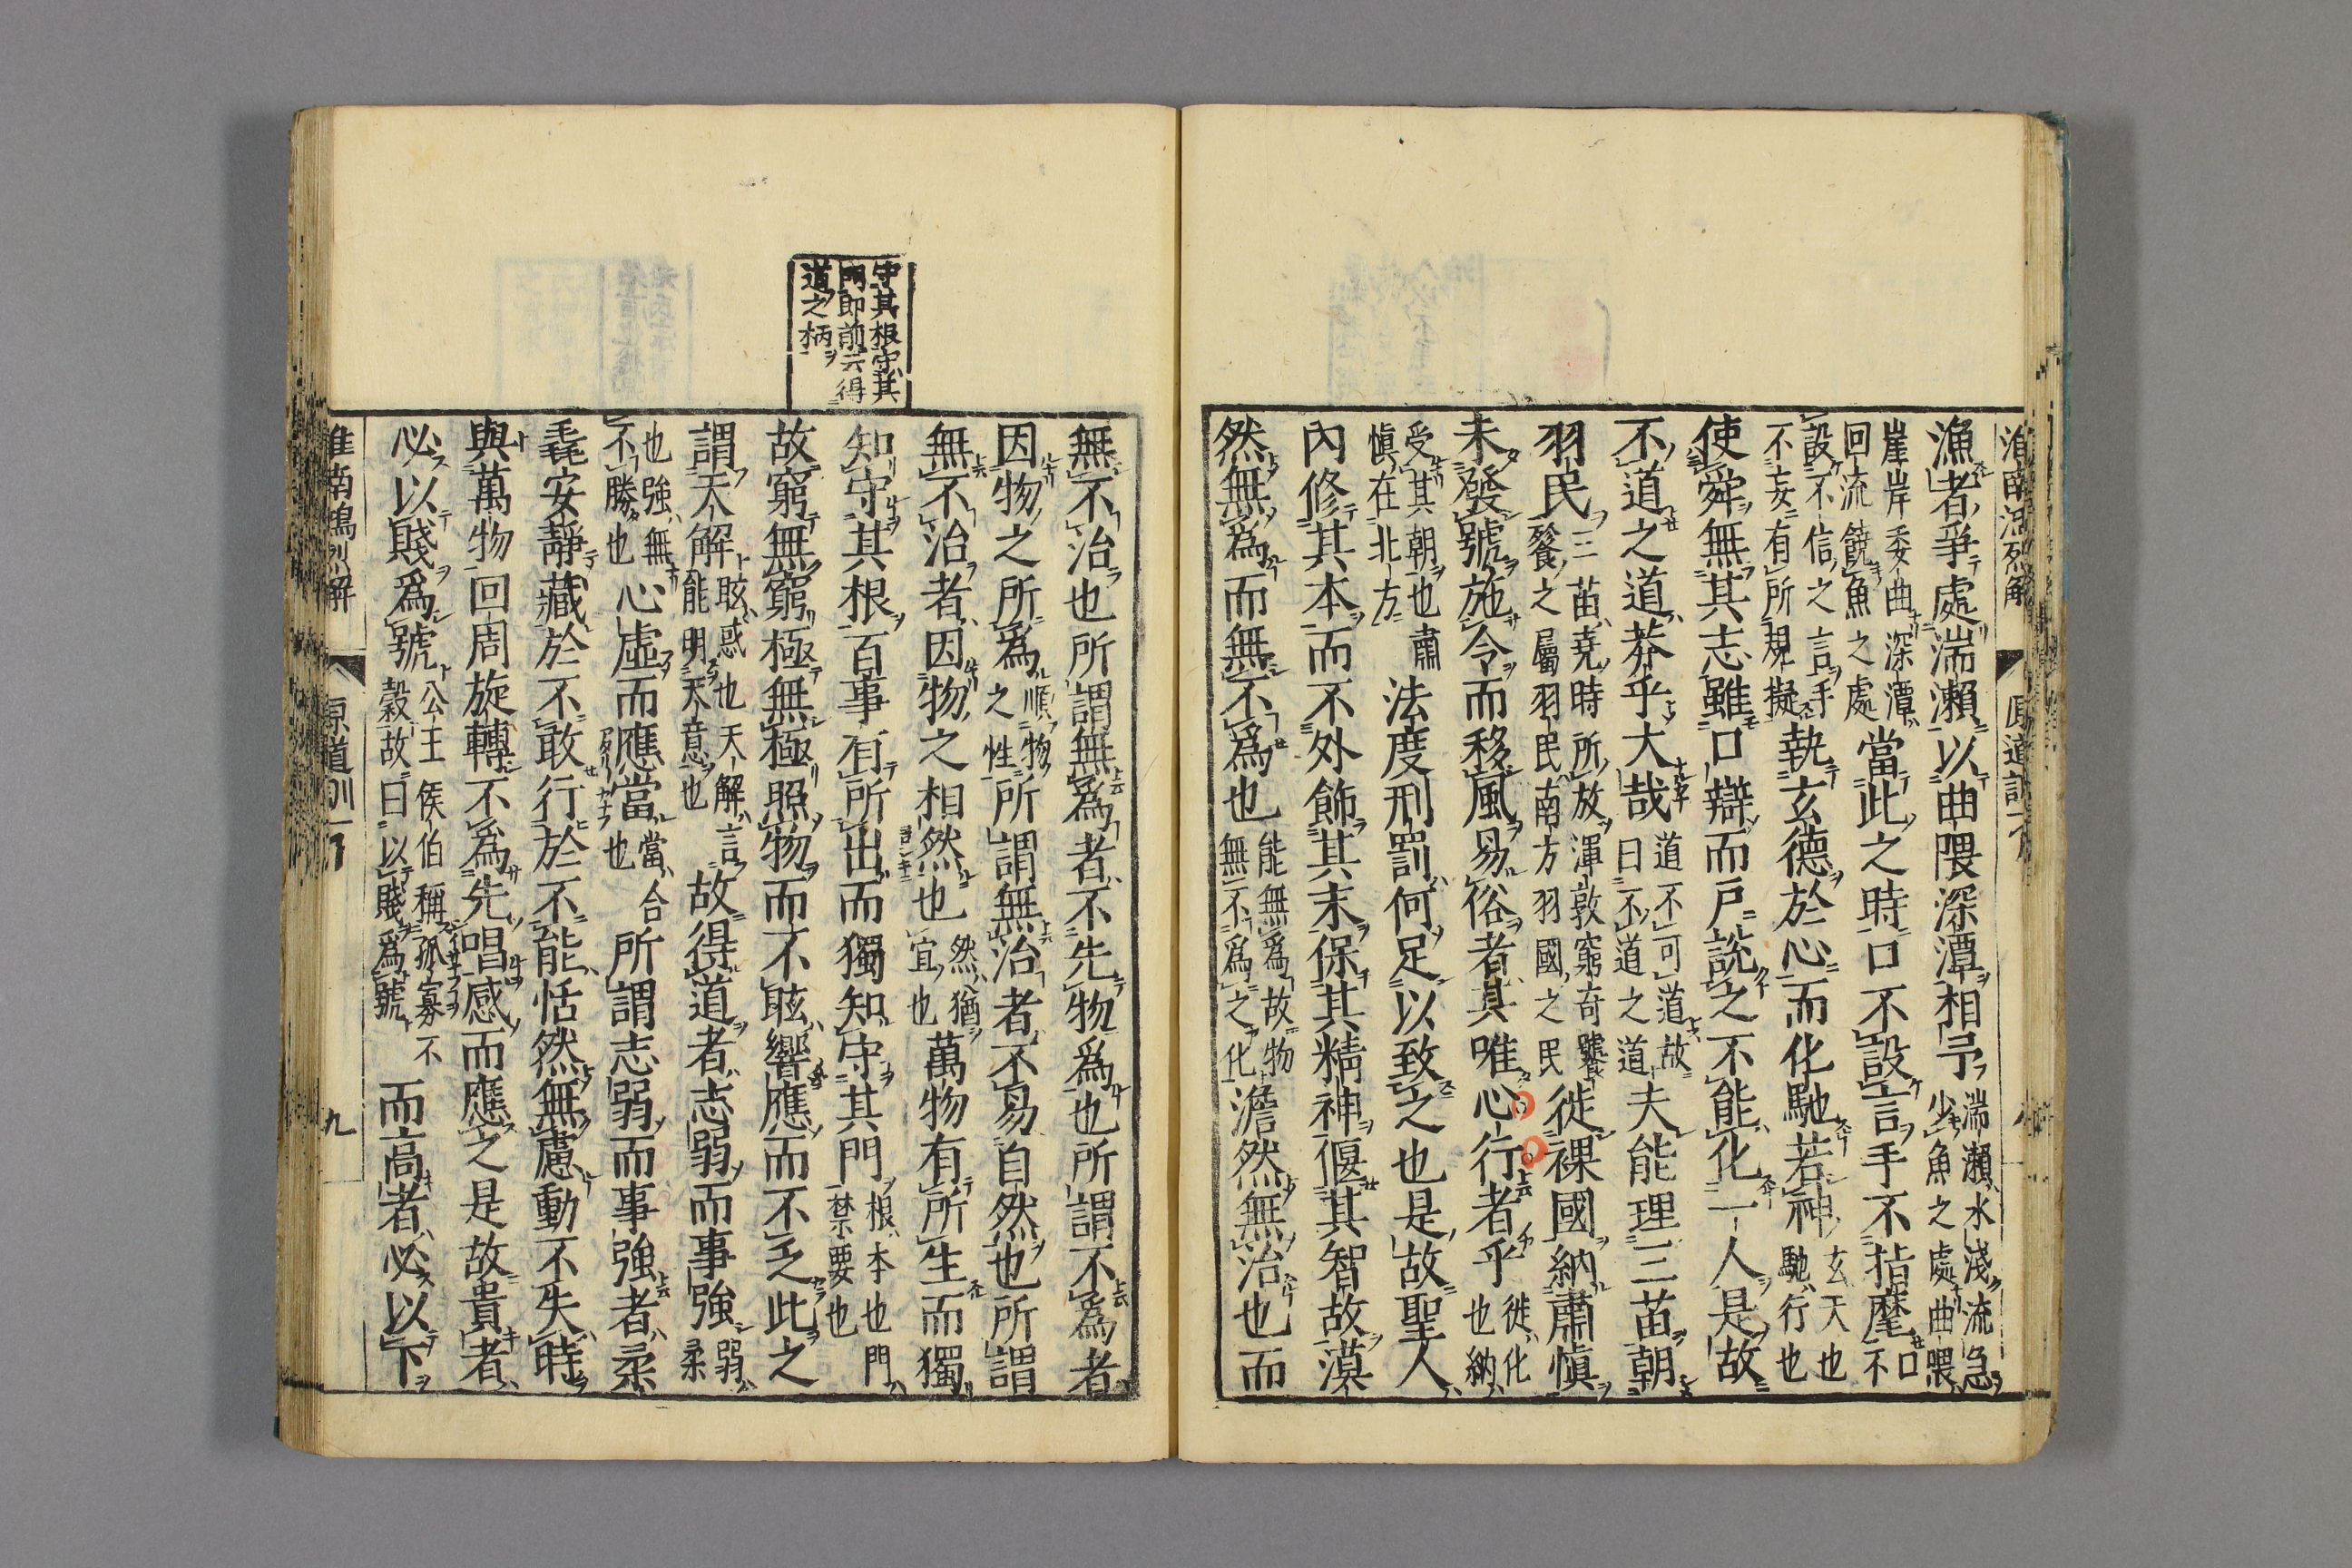 漁者爭處湍瀨以曲隈深潭相予湍瀨水淺流急少魚之處曲隈
崖岸委曲深潭回流饒魚之處當此之時口不設言手不指麾口不
設不信之言手不妄有所規擬執玄德於心而化馳若神玄天也馳行也
使舜無其志雖口辯而戶說之不能化一人是故
不道之道莽乎大哉道不可道故曰不道之道夫能理三苗朝
羽民三苗堯時所放渾敦窮奇饕餮之屬羽民南方羽國之民徙裸國納肅慎
未發號施令而移風易俗者其唯心行者乎徙化也納
受其朝也肅慎在北方法度刑罰何足以致之也是故聖人
內修其本而不外飾其末保其精神偃其智故漠
然無爲而無不爲也能無爲故物無不爲之化澹然無治也而
守其根守其
門即前云得
道之柄
無不治也所謂無爲者不先物爲也所謂不爲者
因物之所爲順物之性所謂無治者不易自然也所謂
無不治者因物之相然也然猶宜也萬物有所生而獨
知守其根百事有所出而獨知守其門根本也門禁要也
故窮無窮極無極照物而不眩響應而不乏此之
謂天解眩惑也天解言能明天意也故得道者志弱而事強弱柔
也強無不勝也心虛而應當當合也所謂志弱而事強者柔
毳安靜藏於不敢行於不能恬然無慮動不失時
與萬物回周旋轉不爲先唱感而應之是故貴者
必以賤爲號公王侯伯稱孤寡不穀故曰以賤爲號而高者必以下
淮南鴻烈解 原道訓 九